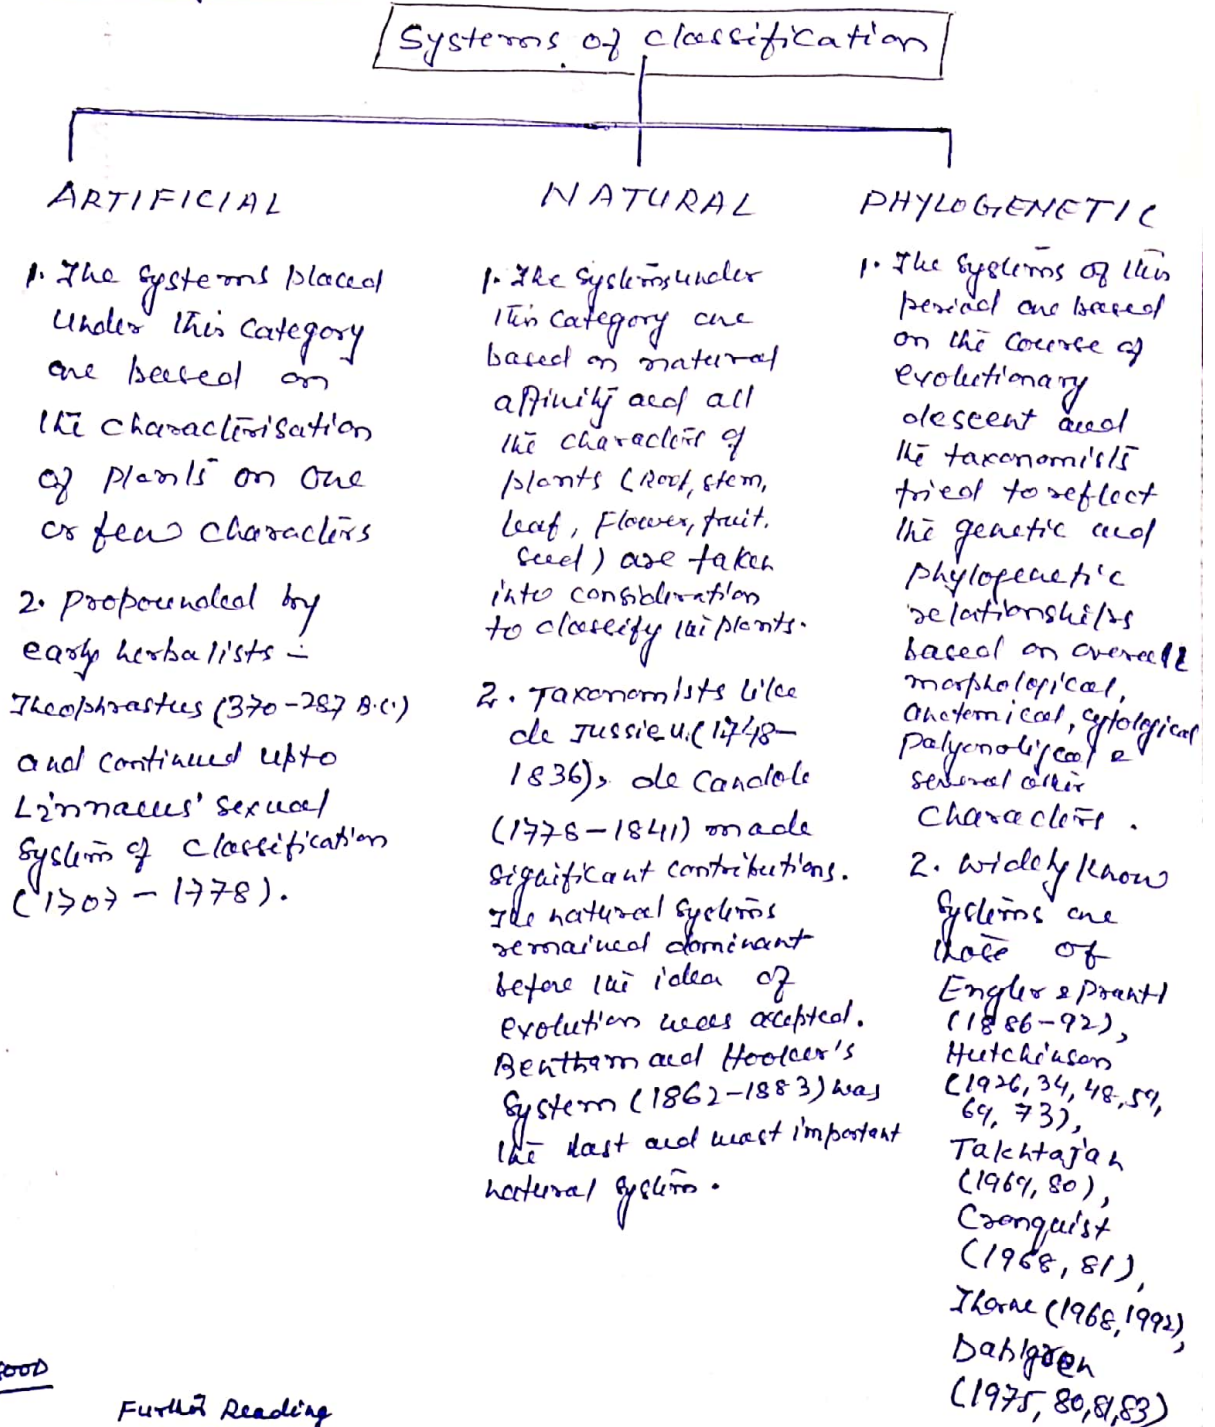 Systems of classification
ARTIFICIAL
1. The systems placed
under this category
are based on
the characterisation
of plants on one
or few characters
2. Propounded by
early herbalists -
Theophrastus (370-287 B.C.)
and continued upto
Linnaeus' sexual
system of classification
(1707 - 1778).
NATURAL
1. The systems under
this category are
based on natural
affinity and all
the characters of
plants (Root, stem,
leaf, Flower, fruit,
seed) are taken
into consideration
to classify the plants.
2. Taxonomists like
de Jussieu (1748-
1836), de Candole
(1778-1841) made
significant contributions.
The natural systems
remained dominant
before the idea of
evolution was accepted.
Bentham and Hooker's
system (1862-1883) was
the last and most important
natural system.
PHYLOGENETIC
1. The systems of this
period are based
on the course of
evolutionary
descent and
the taxonomists
tried to reflect
the genetic and
phylogenetic
relationships
based on overall
morphological,
anatomical, cytological
palynological &
several other
characters.
2. Widely know
systems are
those of
Engler & Prantl
(1886-92),
Hutchinson
(1926, 34, 48, 59,
69, 73),
Takhtajan
(1969, 80),
Cronquist
(1968, 81),
Thorne (1968, 1992),
Dahlgren
(1975, 80, 81, 83)
Further Reading